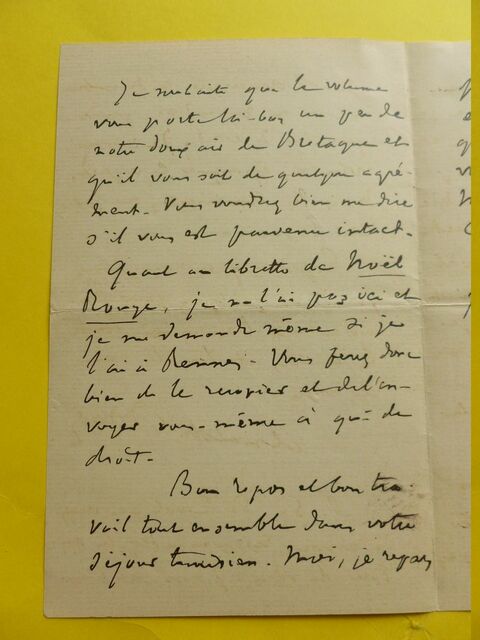 Je souhaite que le volume
vous porte là-bas un peu de
notre doux air de Bretagne et
qu'il vous soit de quelque agré-
ment. Vous voudrez bien me dire
s'il vous est parvenu intact.
Quant au libretto de Noël
Rouge, je ne l'ai pas ici et
je me demande même si je
l'ai à Rennes. Vous ferez donc
bien de le recopier et de l'en-
voyer vous-même à qui de
droit.
Bon repos et bon tra-
vail tout ensemble dans votre
séjour tunisien. Moi, je